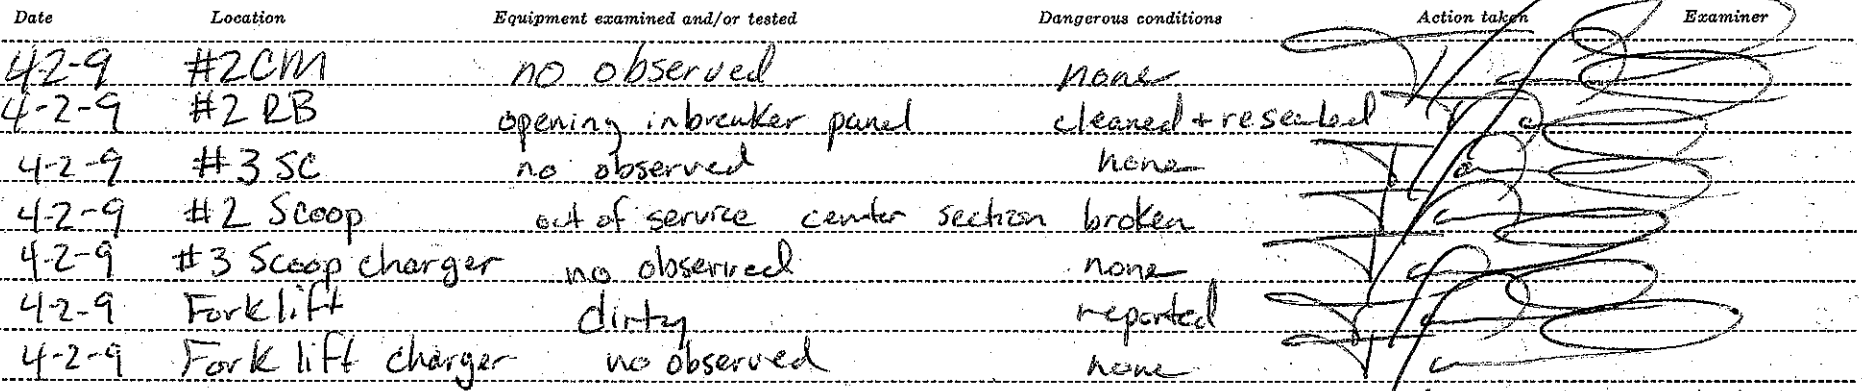 Date Location Equipment examined and/or tested Dangerous conditions Action taken Examiner
4-2-9 #2CM no observed none
4-2-9 #2 RB opening in breaker panel cleaned + resealed
4-2-9 #3 SC no observed none
4-2-9 #2 Scoop out of service center section broken
4-2-9 #3 Scoop charger no observed none
4-2-9 Forklift dirty reported
4-2-9 Fork lift charger no observed none